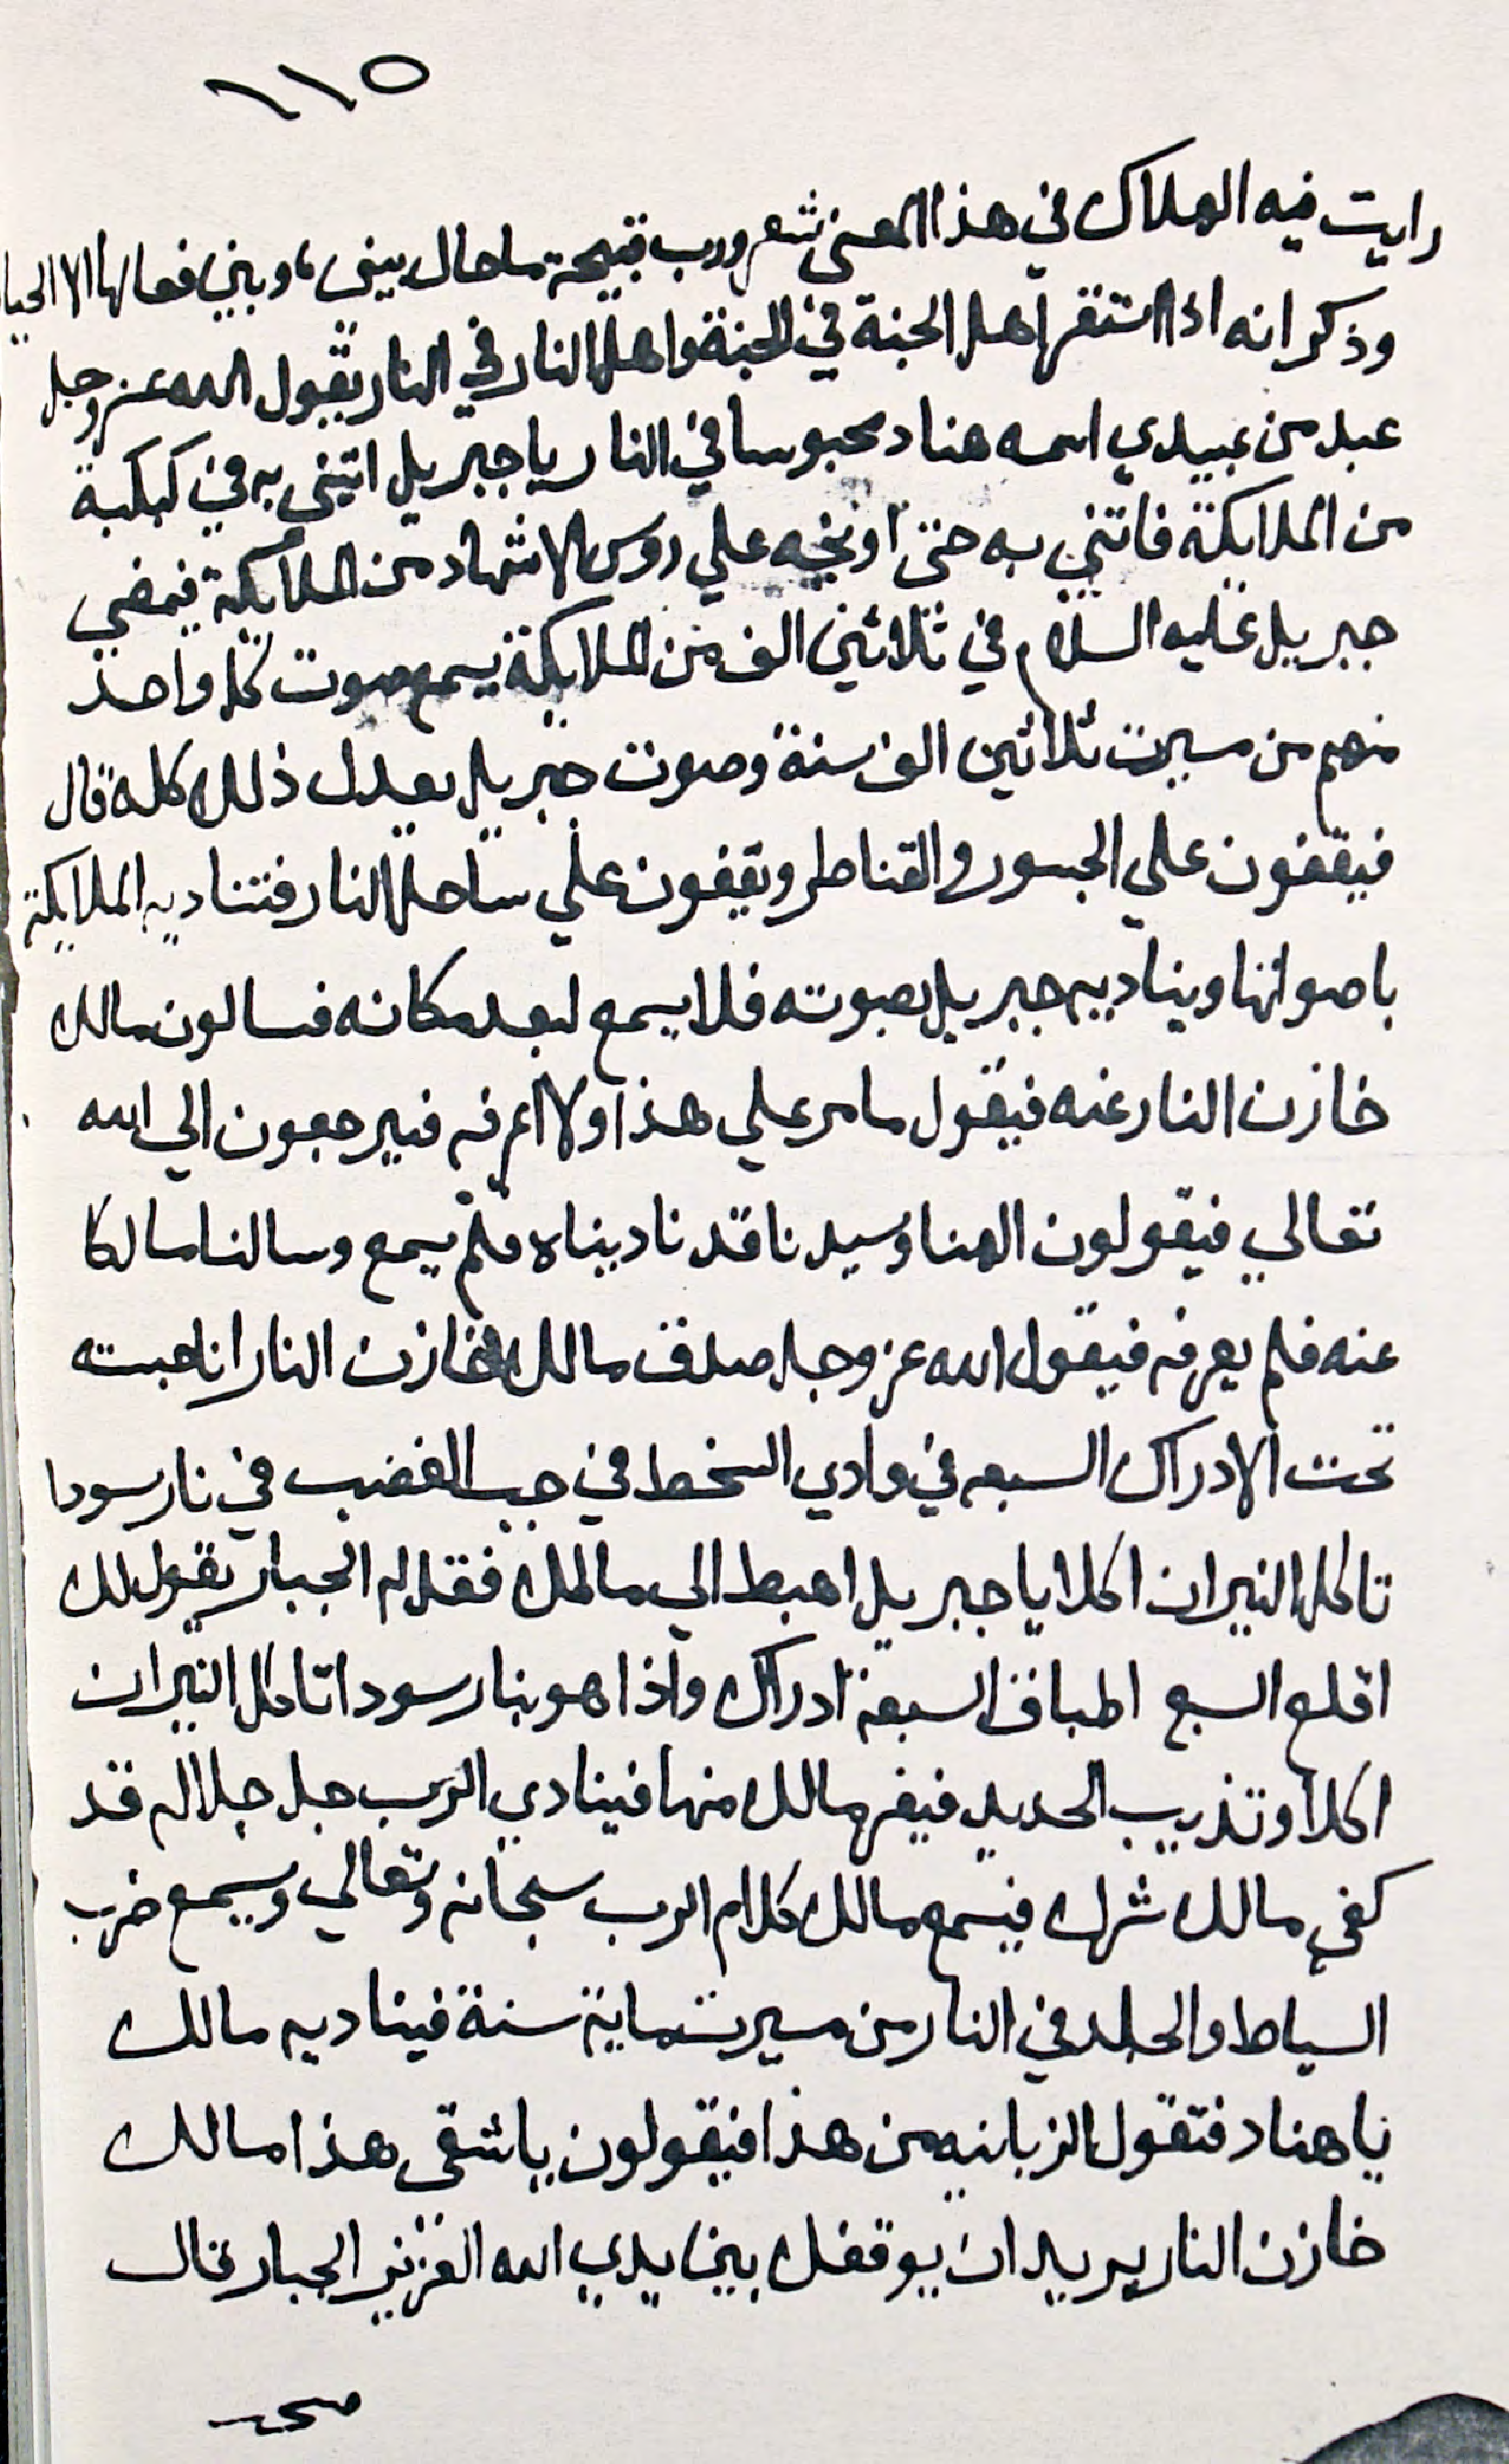 ١١٥
رايت فيه الهلاك في هذا المعنى شعر ورب قبيحة ما حال بيني، وبين فعالها الا الحيا
وذكر انه اذا استقر اهل الجنة في الجنة واهل النار في النار يقول الله عز وجل
عبد من عبيدي اسمه هناد محبوسا في النار يا جبريل اتيني به في كبكبة
من الملايكة فاتني به حتى اوبخه علي روس الاشهاد من الملايكة فيمضي
جبريل عليه السلام في ثلاثين الف من الملايكة يسمع صوت كل واحد
منهم من مسيرت ثلاثين الف سنة وصوت جبريل يعدل ذلك كله قال
فيقفون علي الجسور والقناطر ويقفون علي ساحل النار فتناديه الملايكة
باصواتها ويناديه جبريل بصوته فلا يسمع لبعد مكانه فسالون مالك
خازن النار عنه فيقول ما مر علي هذا ولا اعرفه فيرجعون الي الله
تعالي فيقولون الهنا وسيدنا قد ناديناه فلم يسمع وسالنا مالكا
عنه فلم يعرفه فيقول الله عز وجل صدق مالك خازن النار انا حبسته
تحت الادراك السبعه في وادي السخط في جب الغضب في نار سودا
تاكل النيران اكلا يا جبريل اهبط الي مالك فقل له الجبار يقول لك
اقلع السبع اطباق السبعة ادراك واذا هو بنار سودا تاكل النيران
اكلا وتذيب الحديد فيفر مالك منها فينادي الرب جل جلاله قد
كفي مالك شرك فيسمع مالك كلام الرب سبحانه وتعالي ويسمع ضرب
السياط والجلد في النار من مسيرت ماية سنة فيناديه مالك
يا هناد فتقول الزبانيه من هذا فيقولون يا شقى هذا مالك
خازن النار يريد ان يوقفك بين يدي الله العزيز الجبار قال